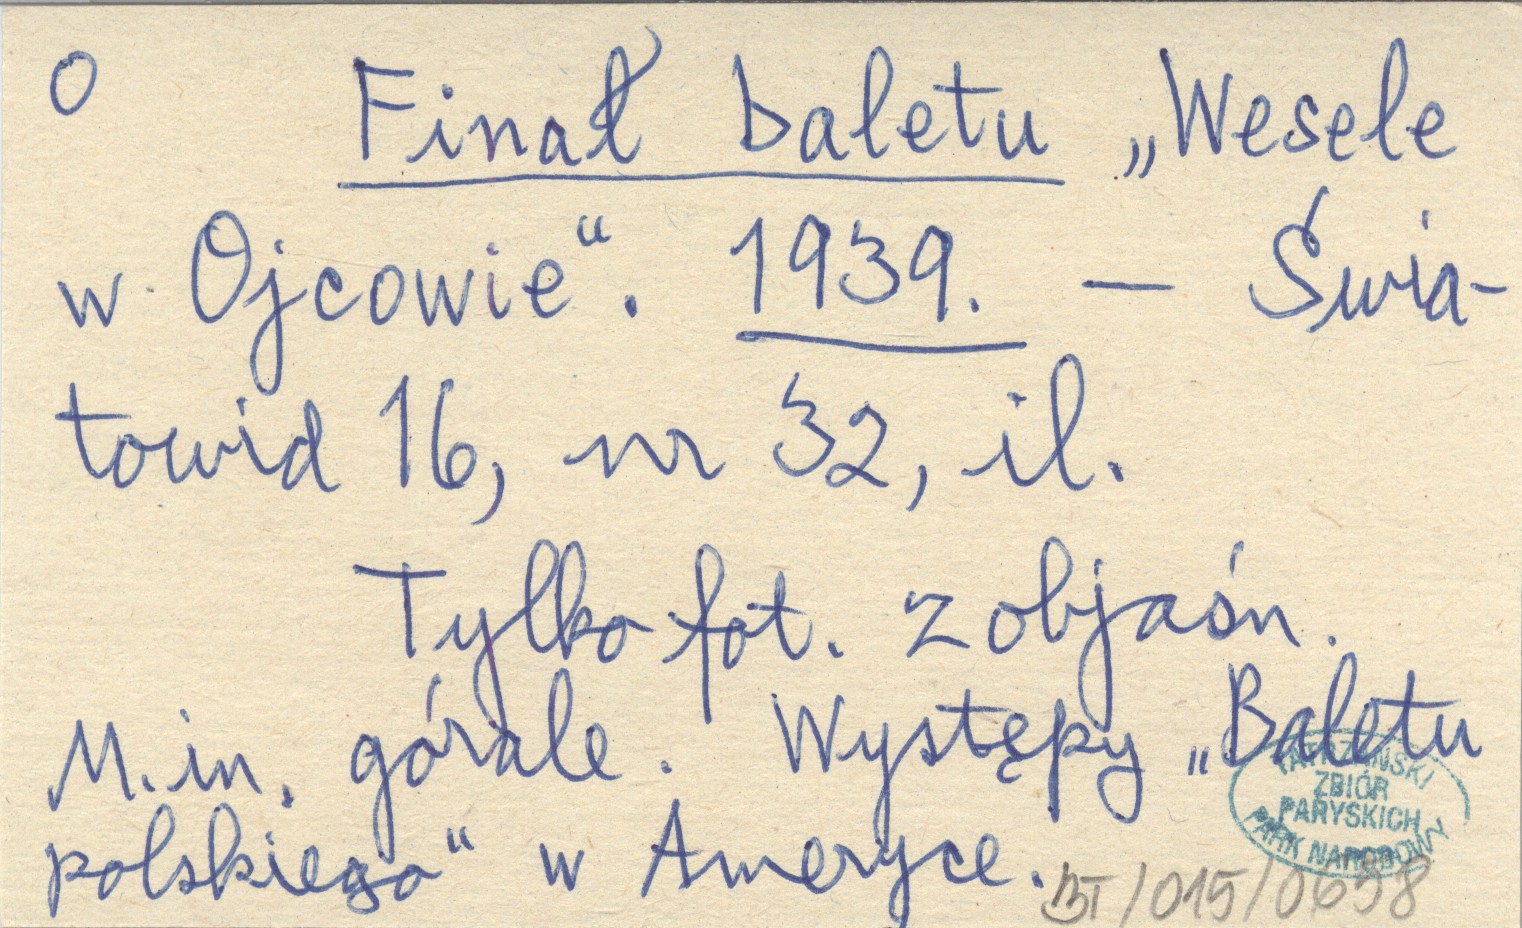 O Finał baletu „Wesele
w Ojcowie“. 1939. — Świa-
towid 16, nr 32, il.
Tylko fot. z objaśn.
M.in. górale. Występy „Baletu
polskiego“ w Ameryce.
TATRZAŃSKI
ZBIÓR
PARYSKICH
PARK NARODOWY
BT/015/0698